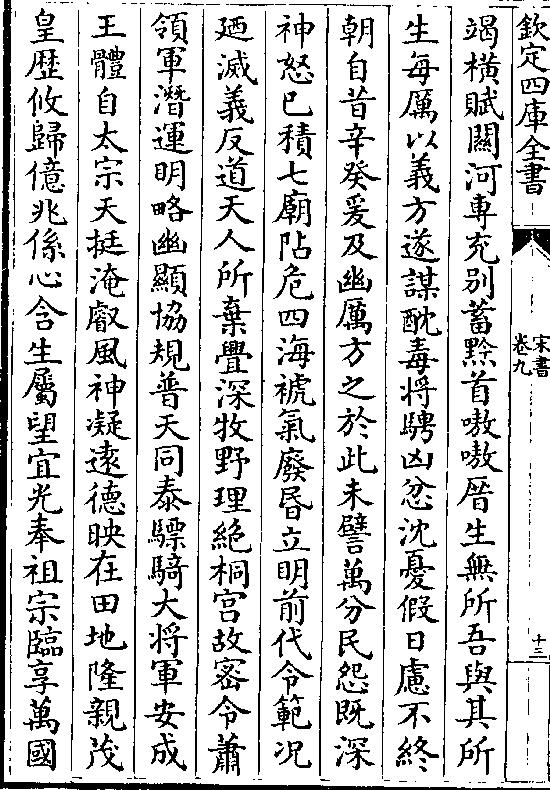 欽定四庫全書
宋書
卷九
十三
竭橫賦關河專充別蓄黔首嗷嗷厝生無所吾與其所
生每厲以義方遂謀酖毒將騁凶忿沈憂假日慮不終
朝自昔辛癸爰及幽厲方之於此未譬萬分民怨既深
神怒已積七廟阽危四海褫氣廢昏立明前代令範况
廼滅義反道天人所棄釁深牧野理絕桐宫故宻令蕭
領軍潛運明略幽顯協規普天同泰驃騎大將軍安成
王體自太宗天挺淹叡風神凝逺德映在田地隆親茂
皇歴攸歸億兆係心含生屬望宜光奉祖宗臨享萬國